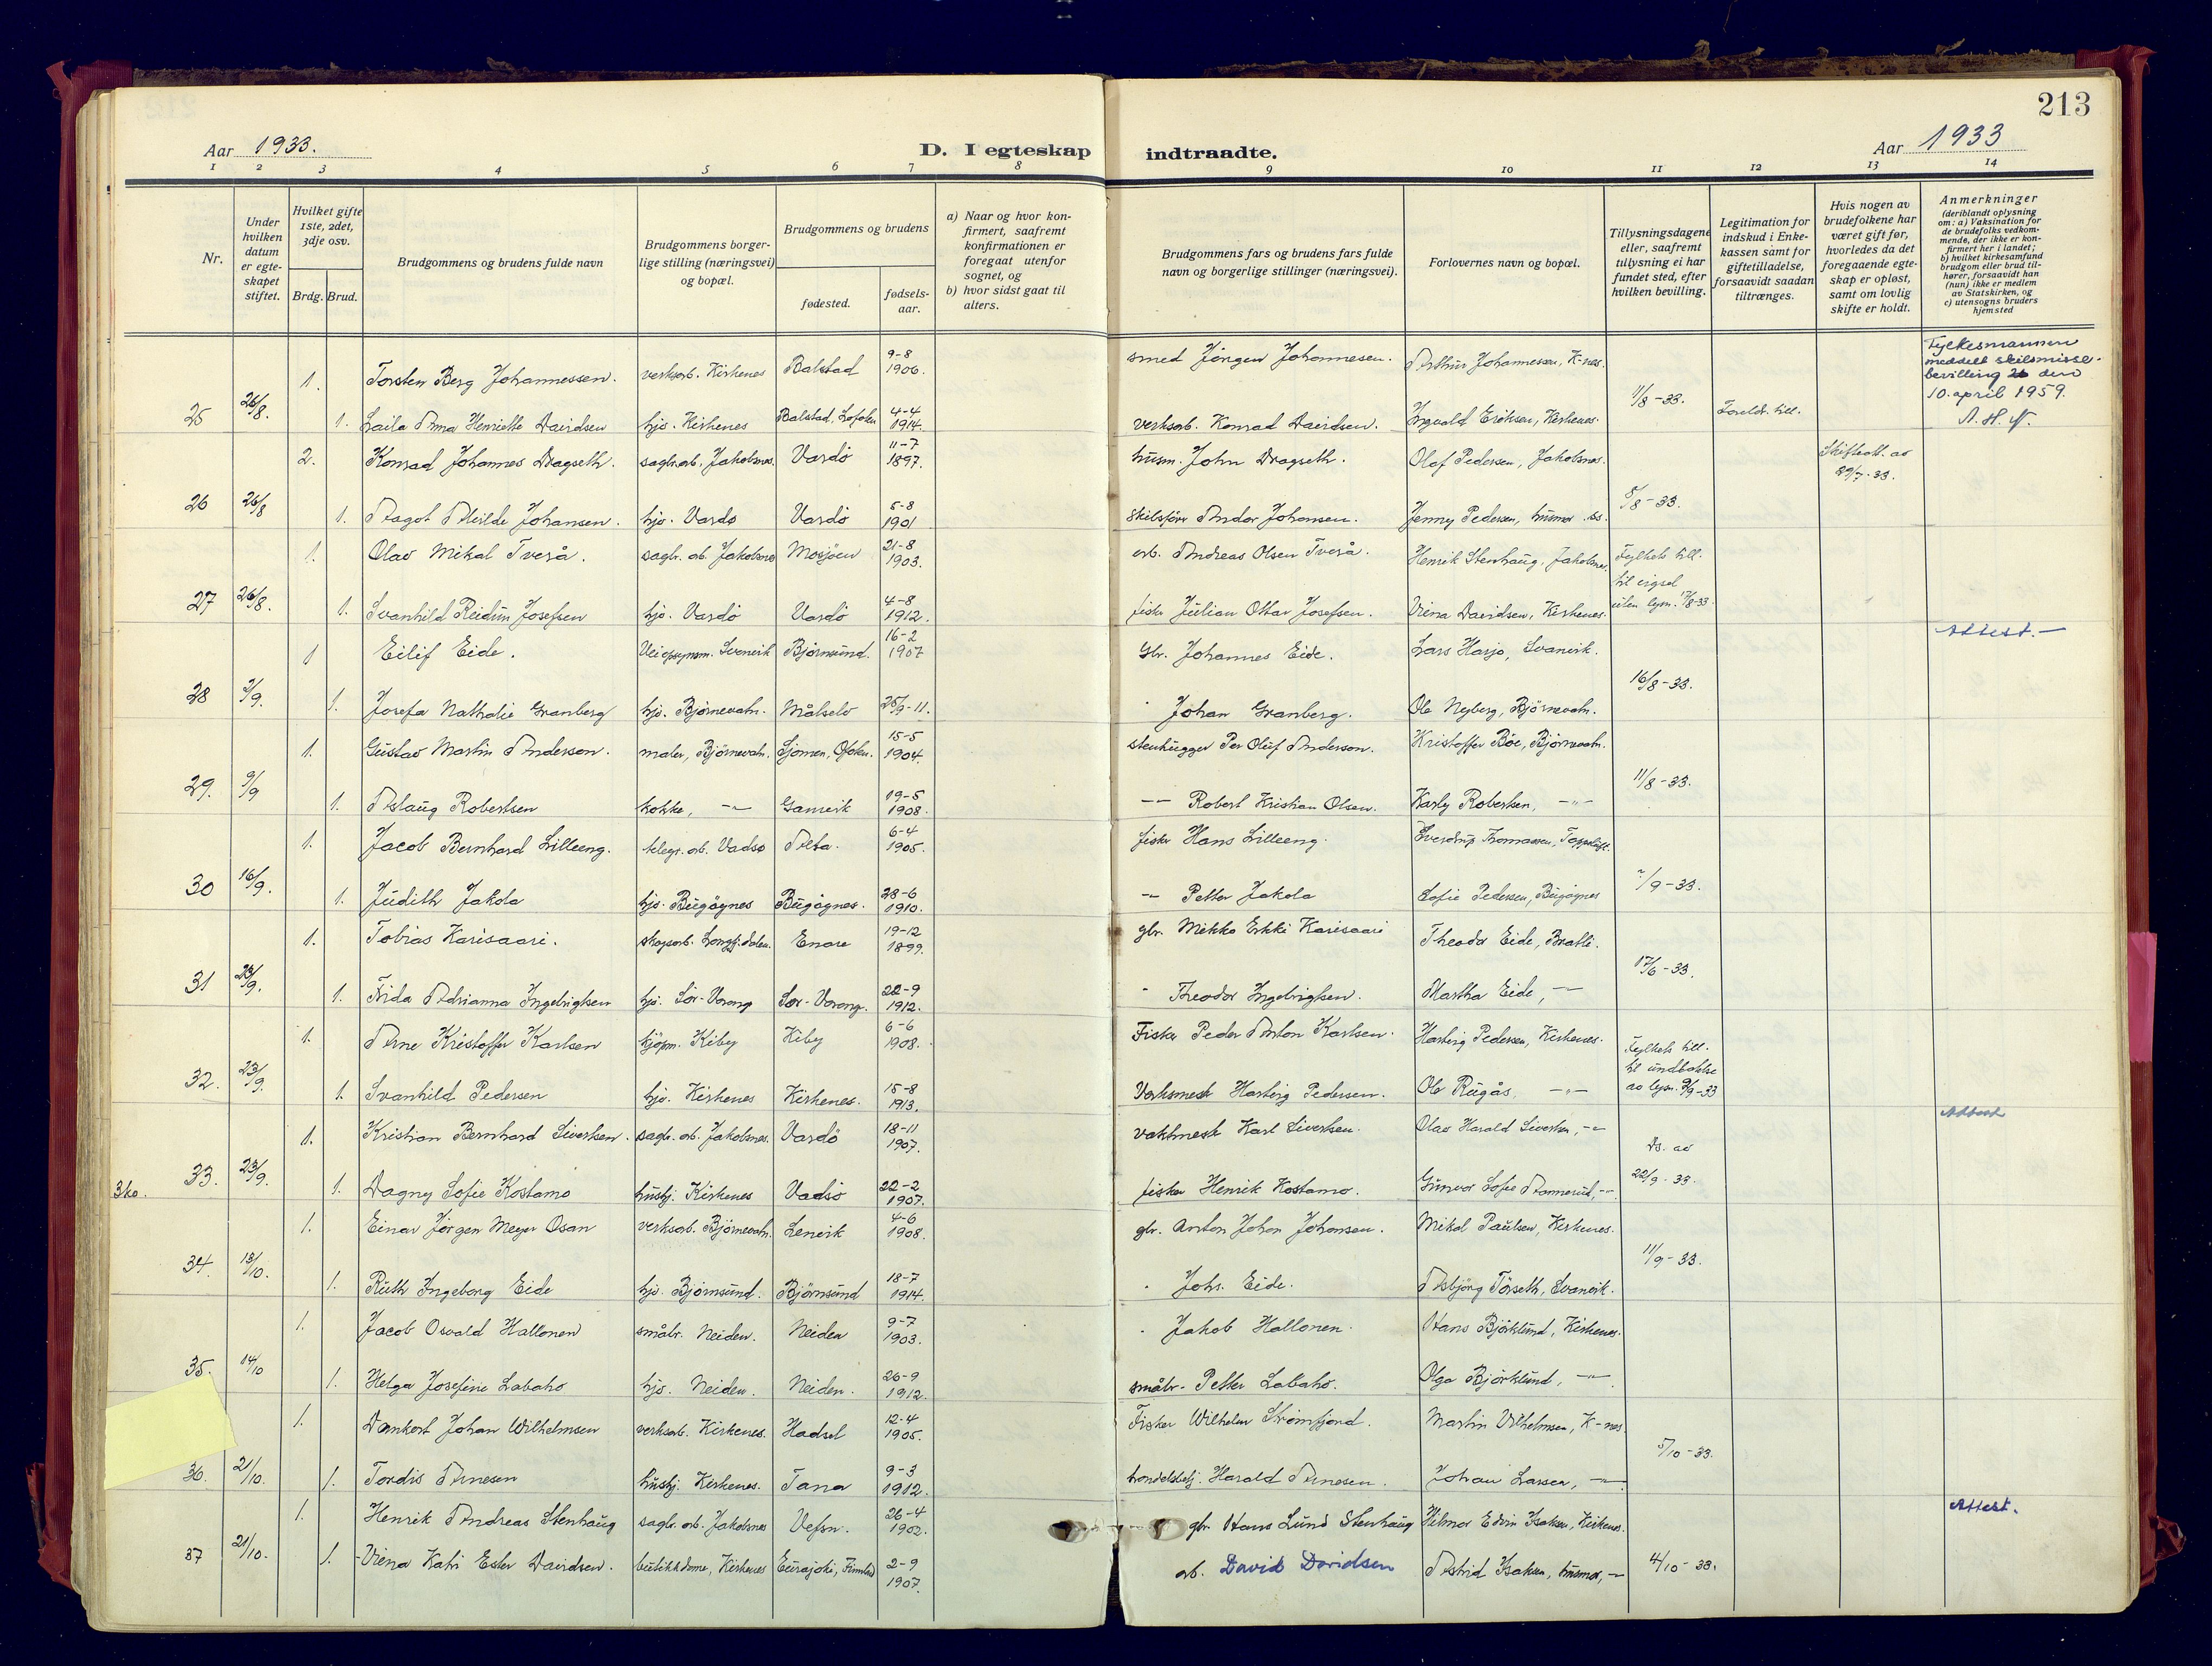 213
Aar 1933.
D. I egteskap
indtraadte.
Aar 1933
1 2 3 4 5 6 7 8 9 10 11 12 13 14
Nr.
Under hvilken datum er egteskapet stiftet.
Hvilket gifte 1ste, 2det, 3dje osv.
Brdg. Brud.
Brudgommens og brudens fulde navn
Brudgommens borgerlige stilling (næringsvei) og bopæl.
Brudgommens og brudens
fødested.
fødselsaar.
a) Naar og hvor konfirmert, saafremt konfirmationen er foregaat utenfor sognet, og
b) hvor sidst gaat til alters.
Brudgommens fars og brudens fars fulde navn og borgerlige stillinger (næringsvei).
Forlovernes navn og bopæl.
Tillysningsdagene eller, saafremt tillysning ei har fundet sted, efter hvilken bevilling.
Legitimation for indskud i Enkekassen samt for giftetilladelse, forsaavidt saadan tiltrænges.
Hvis nogen av brudefolkene har været gift før, hvorledes da det foregaaende egteskap er opløst, samt om lovlig skifte er holdt.
Anmerkninger
(deriblandt oplysning om: a) Vaksination for de brudefolks vedkommende, der ikke er konfirmert her i landet; b) hvilket kirkesamfund brudgom eller brud tilhører, forsaavidt han (hun) ikke er medlem av Statskirken, og c) utensogns bruders hjemsted
1. Torsten Berg Johannessen. verksarb. Kirkenes Balstad 9-8 1906. smed Jörgen Johannesen. Arthur Johannessen, K-nes.
Fylkesmannen meddelt skilsmisse-bevilling den 10. april 1959.
25 26/8. 1. Laila Anna Henriette Davidsen hjs. Kirkenes Balstad, Lofoten 4-4 1914. verksarb. Konrad Davidsen. Ingvald Eriksen, Kirkenes. 11/8-33. Foreldr. till.
2. Konrad Johannes Dragseth. sagbr.arb. Jakobsnes. Vardö 11-7 1897. husm. John Dragseth. Olaf Pedersen, Jakobsnes. Skifteatt. av
26 26/8 1. Dagot Alvilde Johansen. hjs. Vardø Vardö 5-8 1901 Andor Johansen. Jenny Pedersen, husmor 5/8-33.
1. Olav Mikal Tverå. sagbr. arb. Jakobsnes Mosjöen 21-8 1903. arb. Andreas Olsen Tverå. Henrik Stenhaug, Jakobsnes. Fylkets till. til vigsel uten lysn. 17/8-33.
27 26/8. 1. Svanhild Reidun Josefsen hjs. Vardö Vardö 4-8 1912. fisker Julian Ottar Josefsen. Viena Davidsen, Kirkenes.
1 Eilif Eide. Veiopsynsm. Svanvik Björnsund. 16-2 1907 Gbr. Johannes Eide. Lars Harjo, Svanvik. Attest.-
28 2/9. 1. Josefa Nathalie Granberg hjs. Björnevatn. Målselv 25/9-11. " Johan Granberg. Ole Nyberg, Björnevatn. 16/8-33.
1. Gustav Martin Anderson. maler, Björnevatn. Sjomen, Ofoten. 15-5 1904. stenhugger Per Oluf Anderson. Kristoffer Böe, Björnevatn.
29. 9/9 1. Aslaug Robertsen kokke, -"- Gamvik 19-5 1908. -"- Robert Kristian Olsen. Karly Robertsen, -"- 11/8-33.
1. Jacob Bernhard Lilleeng. telegr. arb. Vadsø Alta. 6-4 1905. fisker Hans Lilleeng. Sverdrup Thomassen,
30 16/9. 1. Judith Jakola hjs. Bugöynes Bugöynes. 28-6 1910. -"- Petter Jakola Sofie Pedersen, Bugöynes /9-33.
1. Tobias Karisaari. skogsarb. Enare 19-12 1899. gbr. Mikko Erkki Karisaari Theodor Eide, Bratli.
31 23/9. 1. Frida Adrianna Ingebrigtsen hjs. Sör-Varang Sør-Varang. 22-9 1912. " Theodor Ingebrigtsen. Martha Eide, -"- 17/6-33.
1. Arne Kristoffer Karlsen kjöpm. Kiby Kiby 6-6 1908. Fisker Peder Anton Karlsen. Hartvig Pedersen, Kirkenes. Fylkets till. til undlatelse av lysn. 9/9-33
32. 23/9. 1. Svanhild Pedersen hjs. Kirkenes Kirkenes. 15-8 1913. Verksmest. Hartvig Pedersen. Ole Rugås, -"-
1. Kristian Bernhard Sivertsen. sagbr. arb. Jakobsnes. Vardö 18-11 1907. vaktmest. Karl Sivertsen. Olav Harald Sivertsen, -"- Ds. av 22/9-33. Attest
33. 23/9. 1. Dagny Sofie Kostamo hushj. Kirkenes Vadsö 22-2 1907. fisker Henrik Kostamo. Gunvor Sofie
3 ko.
1. Einar Jørgen Meyer Osan verksarb. Björnevatn. Lenvik 4-6 1908. gbr. Anton Johan Johansen. Mikal Paulsen, Kirkenes.
34. 13/10. 1. Ruth Ingeborg Eide hjs. Björnsund. Björnsund 18-7 1914. " Johs. Eide. Asbjörg Törseth, Svanvik. 11/9-33.
1. Jacob Osvald Hallonen småbr. Neiden. Neiden 9-7 1903. " Jakob Hallonen. Hans Björklund, Kirkenes.
35. 14/10 1. Helga Josefine Labaho hjs. Neiden. Neiden. 26-9 1912. småbr. Petter Labaho. Olga Björklund, -"-
1. Dankert Johan Wilhelmsen verksarb. Kirkenes. Hadsel 12-4 1905. Fisker Wilhelm Strömfjord. Martin Vilhelmsen, K-nes
36. 21/10. 1. Tordis Arnesen hushj. Kirkenes. Tana 9-3 1912. handelsbetj. Harald Arnesen. Johan Larsen, -"- 5/10-33.
1. Henrik Andreas Stenhaug sagbr. arb. Jakobsnes Vefsn. 26-4 1902. gbr. Hans Lund Stenhaug Hilmar Edvin Isaksen, Kirkenes. Attest.
37 21/10. 1. Viena Katri Ester Davidsen. butikkdame, Kirkenes Eurajoki, Finnland 2-9 1907. arb. David Davidsen Astrid Isaksen, husmor, -"- 4/10-33.